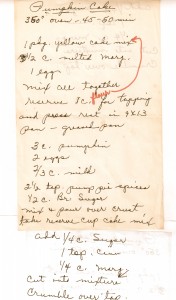 Pumpkin Cake
350° oven - 45-50 min
1 pkg. yellow cake mix
1/2 c. melted marg.
1 egg
mix all together
reserve 1 c. for topping
and press rest in 9x13
pan - greased pan
3 c. pumpkin
2 eggs
2/3 c. milk
2 1/2 tsp pump pie spices
1/2 c. Br Sugar
mix & pour over crust
take reserve cup cake mix
add 1/4 c. Sugar
1 tsp. cinn
1/4 c. marg
Cut into mixture
Crumble over top.